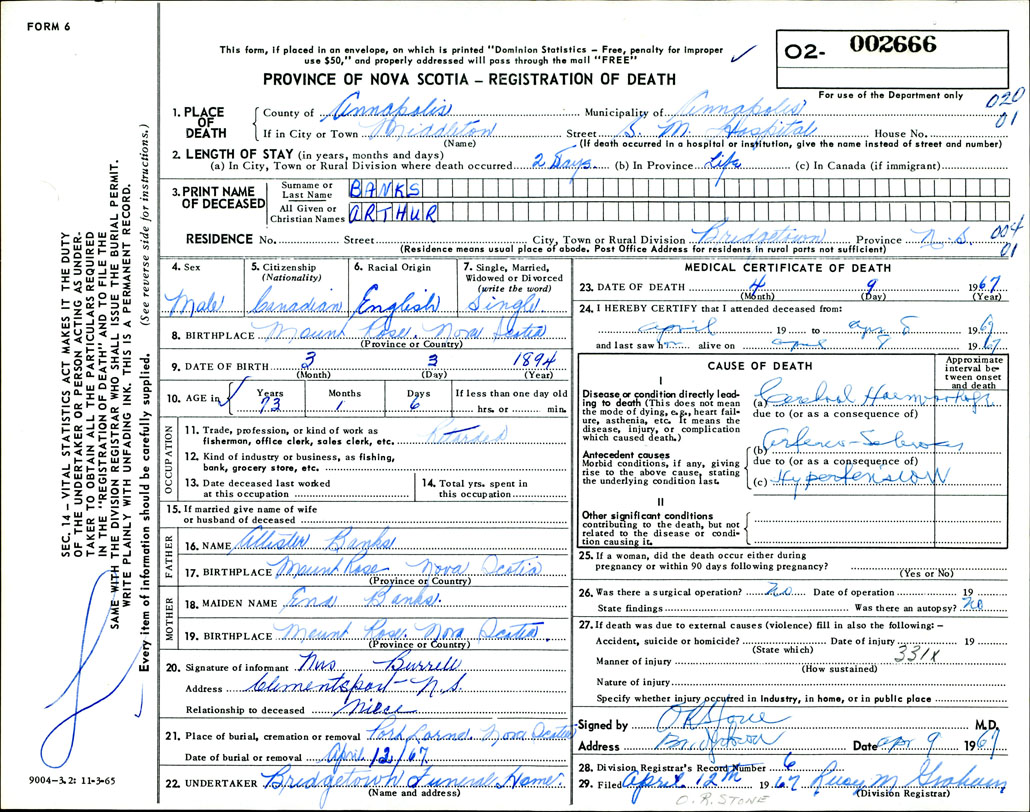 FORM 6
This form, if placed in an envelope, on which is printed "Dominion Statistics – Free, penalty for improper
use $50," and properly addressed will pass through the mail "FREE"
O2- 002666
PROVINCE OF NOVA SCOTIA – REGISTRATION OF DEATH
For use of the Department only
020
01
1. PLACE OF DEATH
County of Annapolis Municipality of Annapolis
If in City or Town Middleton Street S. M. Hospital House No.
(Name) (If death occurred in a hospital or institution, give the name instead of street and number)
2. LENGTH OF STAY (in years, months and days)
(a) In City, Town or Rural Division where death occurred 2 Days (b) In Province Life (c) In Canada (if immigrant)
3. PRINT NAME OF DECEASED
Surname or Last Name BANKS
All Given or Christian Names ARTHUR
RESIDENCE No. Street City, Town or Rural Division Bridgetown Province N.S. 004
(Residence means usual place of abode. Post Office Address for residents in rural parts not sufficient) 01
4. Sex Male
5. Citizenship (Nationality) Canadian
6. Racial Origin English
7. Single, Married, Widowed or Divorced (write the word) Single
8. BIRTHPLACE Mount Rose, Nova Scotia
(Province or Country)
9. DATE OF BIRTH 3 3 1894
(Month) (Day) (Year)
10. AGE in Years Months Days If less than one day old
73 1 6 hrs. or min.
OCCUPATION
11. Trade, profession, or kind of work as
fisherman, office clerk, sales clerk, etc. Retarded
12. Kind of industry or business, as fishing,
bank, grocery store, etc.
13. Date deceased last worked
at this occupation
14. Total yrs. spent in
this occupation
15. If married give name of wife
or husband of deceased
FATHER
16. NAME Allister Banks
17. BIRTHPLACE Mount Rose Nova Scotia
(Province or Country)
MOTHER
18. MAIDEN NAME Ena Banks.
19. BIRTHPLACE Mount Rose. Nova Scotia.
(Province or Country)
20. Signature of informant Mrs Burrell
Address Clementsport N.S.
Relationship to deceased Niece
21. Place of burial, cremation or removal Port Lorne Nova Scotia
Date of burial or removal April 12/67.
22. UNDERTAKER Bridgetown Funeral Home.
(Name and address)
MEDICAL CERTIFICATE OF DEATH
23. DATE OF DEATH 4 9 1967
(Month) (Day) (Year)
24. I HEREBY CERTIFY that I attended deceased from:
april 19 to apr 8 1967
and last saw him alive on april 9 1967
CAUSE OF DEATH
Approximate interval between onset and death
I
Disease or condition directly leading to death (This does not mean
the mode of dying, e.g., heart failure, asthenia, etc. It means the
disease, injury, or complication
which caused death.)
(a) Cerebral Haemorrhage
due to (or as a consequence of)
Antecedent causes
Morbid conditions, if any, giving
rise to the above cause, stating
the underlying condition last.
(b) Arterio-Sclerosis
due to (or as a consequence of)
(c) Hypertension
II
Other significant conditions
contributing to the death, but not
related to the disease or condition causing it.
25. If a woman, did the death occur either during
pregnancy or within 90 days following pregnancy?
(Yes or No)
26. Was there a surgical operation? No Date of operation 19
State findings Was there an autopsy? No
27. If death was due to external causes (violence) fill in also the following: –
Accident, suicide or homicide? Date of injury 19
(State which) 331X
Manner of injury
(How sustained)
Nature of injury
Specify whether injury occurred in Industry, in home, or in public place
Signed by O R Stone M.D.
Address Bridgetown Date apr 9 1967
28. Division Registrar's Record Number 6
29. Filed April 12th 1967 M. Graham
(Division Registrar)
O. R. STONE
SEC. 14 – VITAL STATISTICS ACT MAKES IT THE DUTY
OF THE UNDERTAKER OR PERSON ACTING AS UNDER-
TAKER TO OBTAIN ALL THE PARTICULARS REQUIRED
IN THE "REGISTRATION OF DEATH" AND TO FILE THE
SAME WITH THE DIVISION REGISTRAR WHO SHALL ISSUE THE BURIAL PERMIT.
WRITE PLAINLY WITH UNFADING INK. THIS IS A PERMANENT RECORD.
Every item of information should be carefully supplied. (See reverse side for instructions.)
9004-3.2: 11-3-65